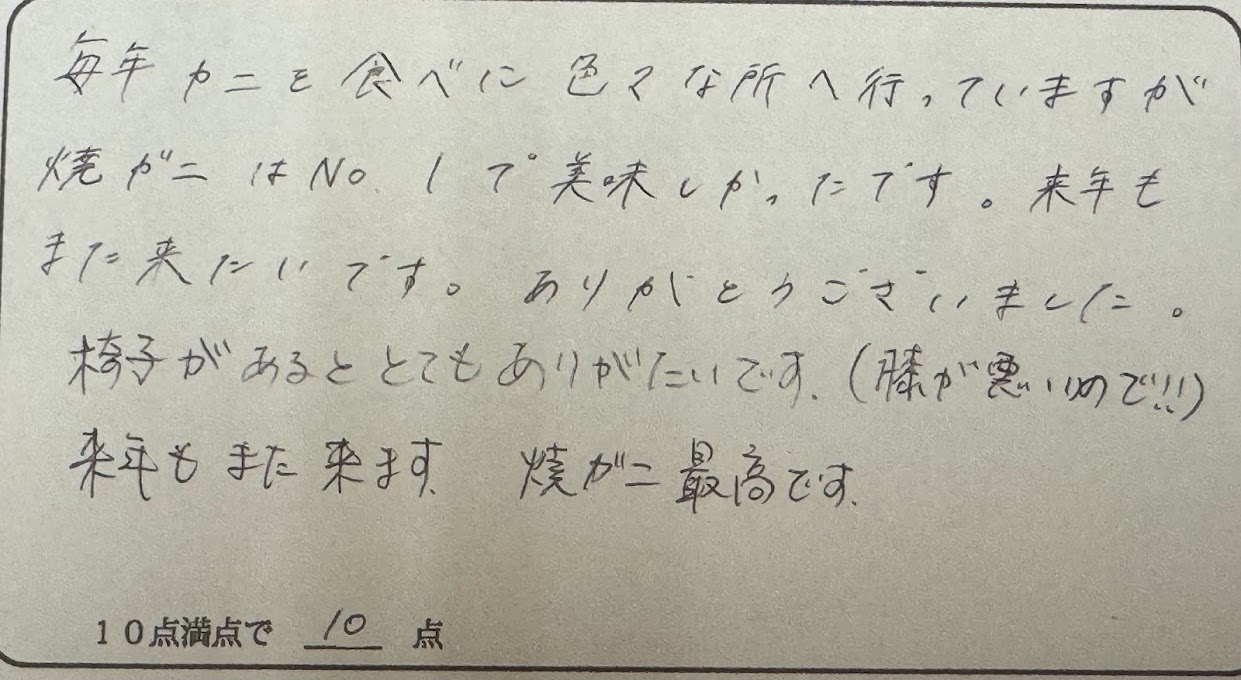 毎年カニを食べに色々な所へ行っていますが
焼ガニはNo.1で美味しかったです。来年も
また来たいです。ありがとうございました。
椅子があるととてもありがたいです.(膝が悪いので!!!)
来年もまた来ます. 焼ガニ最高です.
10点満点で 10 点